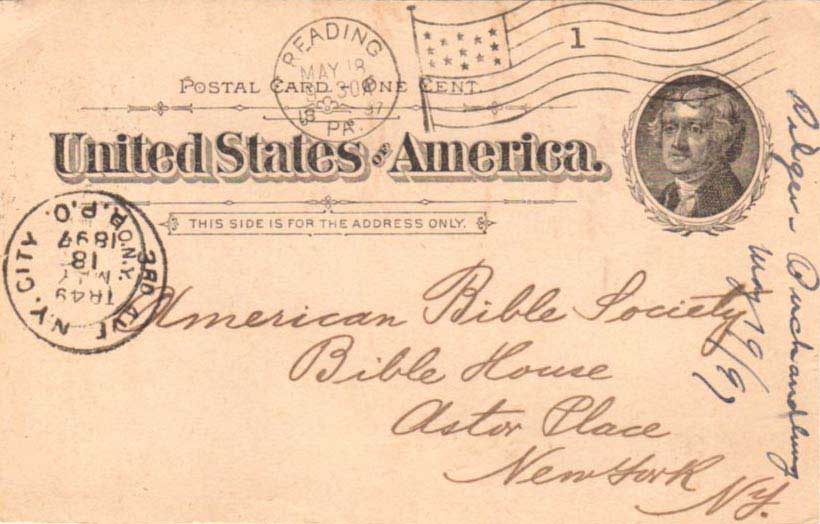 READING
MAY 18
9 30
97
PA.
1
POSTAL CARD - ONE CENT.
United States of America.
THIS SIDE IS FOR THE ADDRESS ONLY.
3RD AVE N.Y. CITY
R.P.O.
N.Y.
1897
18
MAY
TR49
American Bible Society
Bible House
Astor Place
New York
NY.
Pilger Buchhandlung
May 19/97